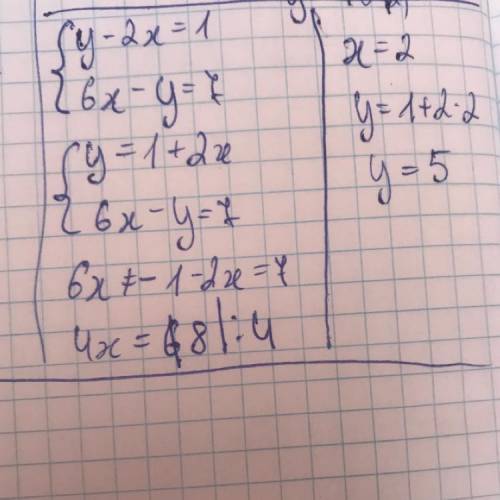 y - 2x = 1
6x - y = 7
y = 1 + 2x
6x - y = 7
6x - 1 - 2x = 7
4x = 8 | : 4
x = 2
y = 1 + 2 · 2
y = 5